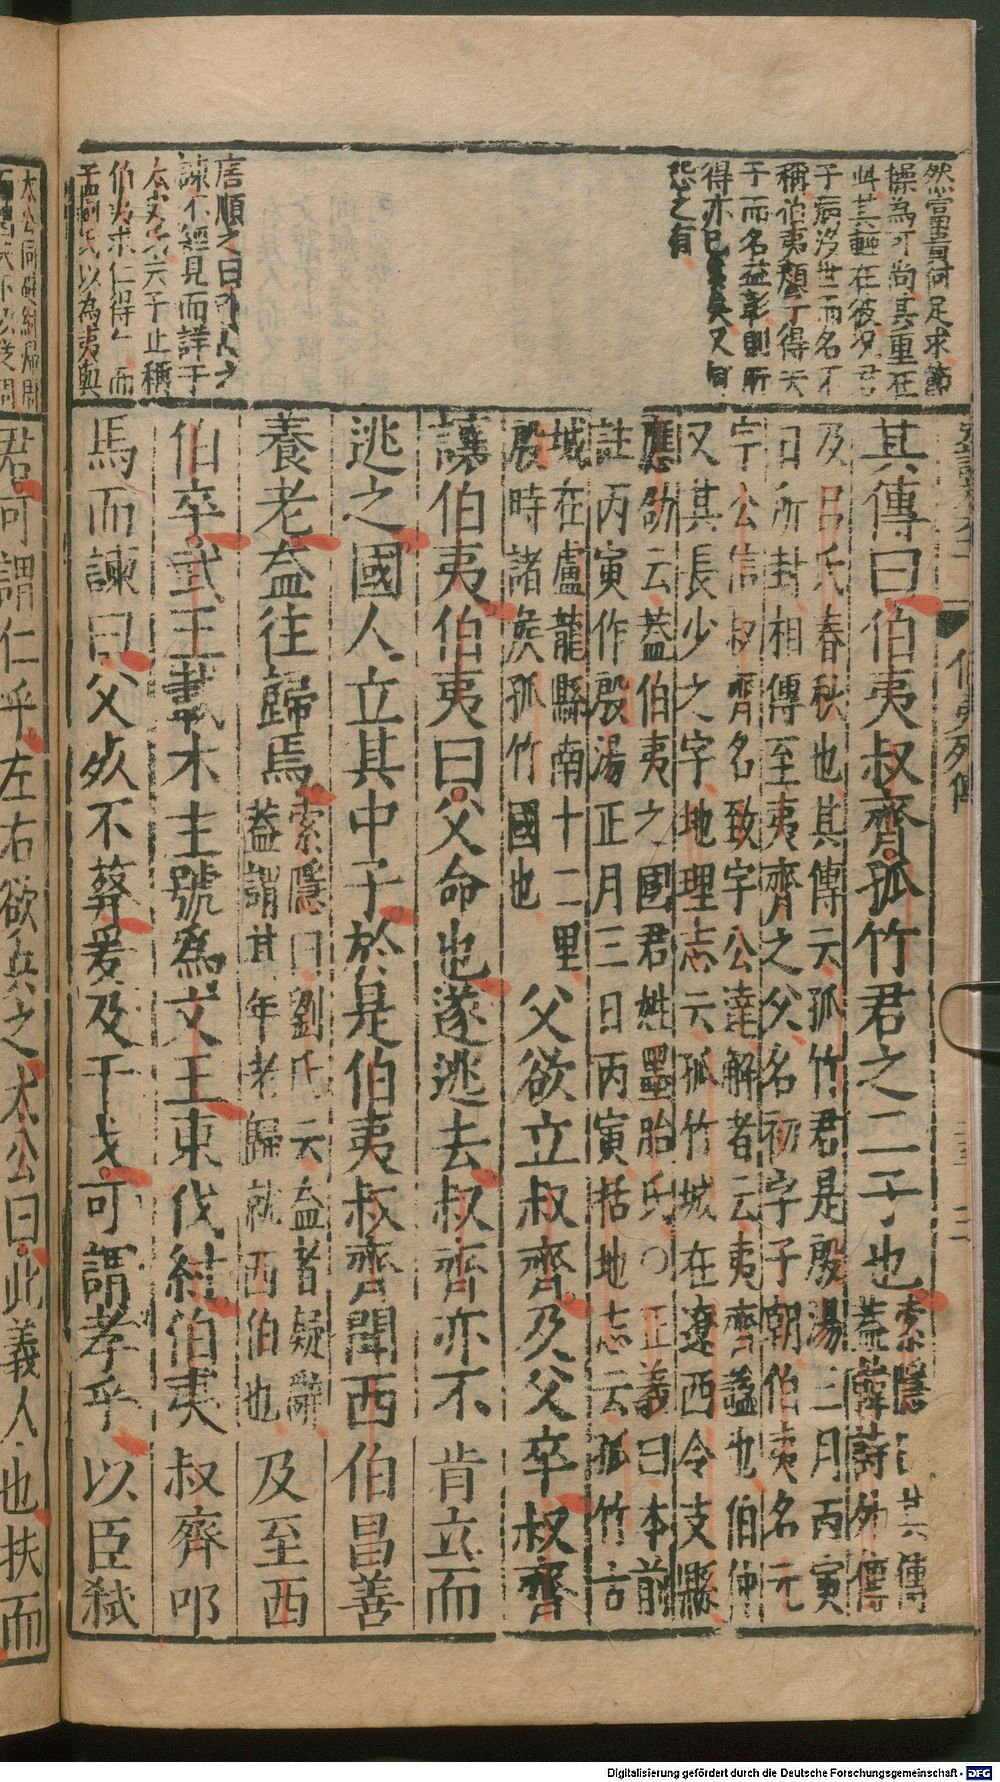 然富貴何足求節
操為可尚其重在
此其輕在彼況君
子疾沒世而名不
稱伯夷顏子得夫
子而名益彰則所
得亦已多矣又何
怨之有
唐順之曰
諫不經見而詳于
太史公夫子止稱
伯夷求仁得仁而
以為夷與
伯夷列傳
其傳曰伯夷叔齊孤竹君之二子也索隱曰其傳
蓋韓詩外傳
及呂氏春秋也其傳云孤竹君是殷湯三月丙寅
日所封相傳至夷齊之父名初字子朝伯夷名元
字公信叔齊名致字公達解者云夷齊謚也伯仲
又其長少之字地理志云孤竹城在遼西令支縣
應劭云蓋伯夷之國君姓墨胎氏○正義曰本前
註丙寅作殷湯正月三日丙寅括地志云孤竹古
城在盧龍縣南十二里
殷時諸侯孤竹國也
父欲立叔齊及父卒叔齊
讓伯夷伯夷曰父命也遂逃去叔齊亦不肯立而
逃之國人立其中子於是伯夷叔齊聞西伯昌善
養老盍往歸焉索隱曰劉氏云盍者疑辭
蓋謂其年老歸就西伯也
及至西
伯卒武王載木主號為文王東伐紂伯夷叔齊叩
馬而諫曰父死不葬爰及干戈可謂孝乎以臣弒
太公同
君可謂仁乎左右欲兵之太公曰此義人也扶而
Digitalisierung gefördert durch die Deutsche Forschungsgemeinschaft - DFG